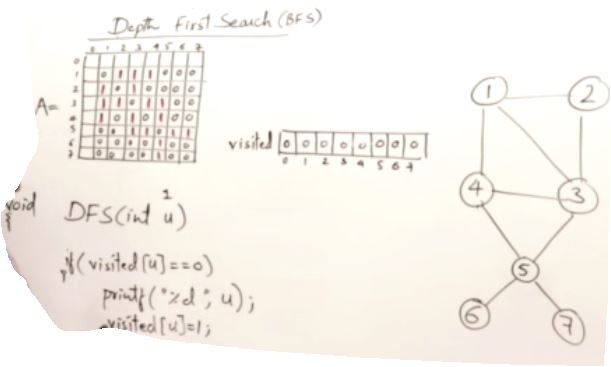 Depth First Search (BFS)
0 1 2 3 4 5 6 7
0
1 0 1 1 1 0 0 0
2 1 0 1 0 0 0 0
3 1 1 0 1 1 0 0
4 1 0 1 0 1 0 0
5 0 0 1 1 0 1 1
6 0 0 0 0 1 0 0
7 0 0 0 0 1 0 0
A=
visited 0 0 0 0 0 0 0 0
0 1 2 3 4 5 6 7
1 2
4 3
5
6 7
1
void DFS(int u)
{
if(visited[u]==0)
{
printf("%d", u);
visited[u]=1;